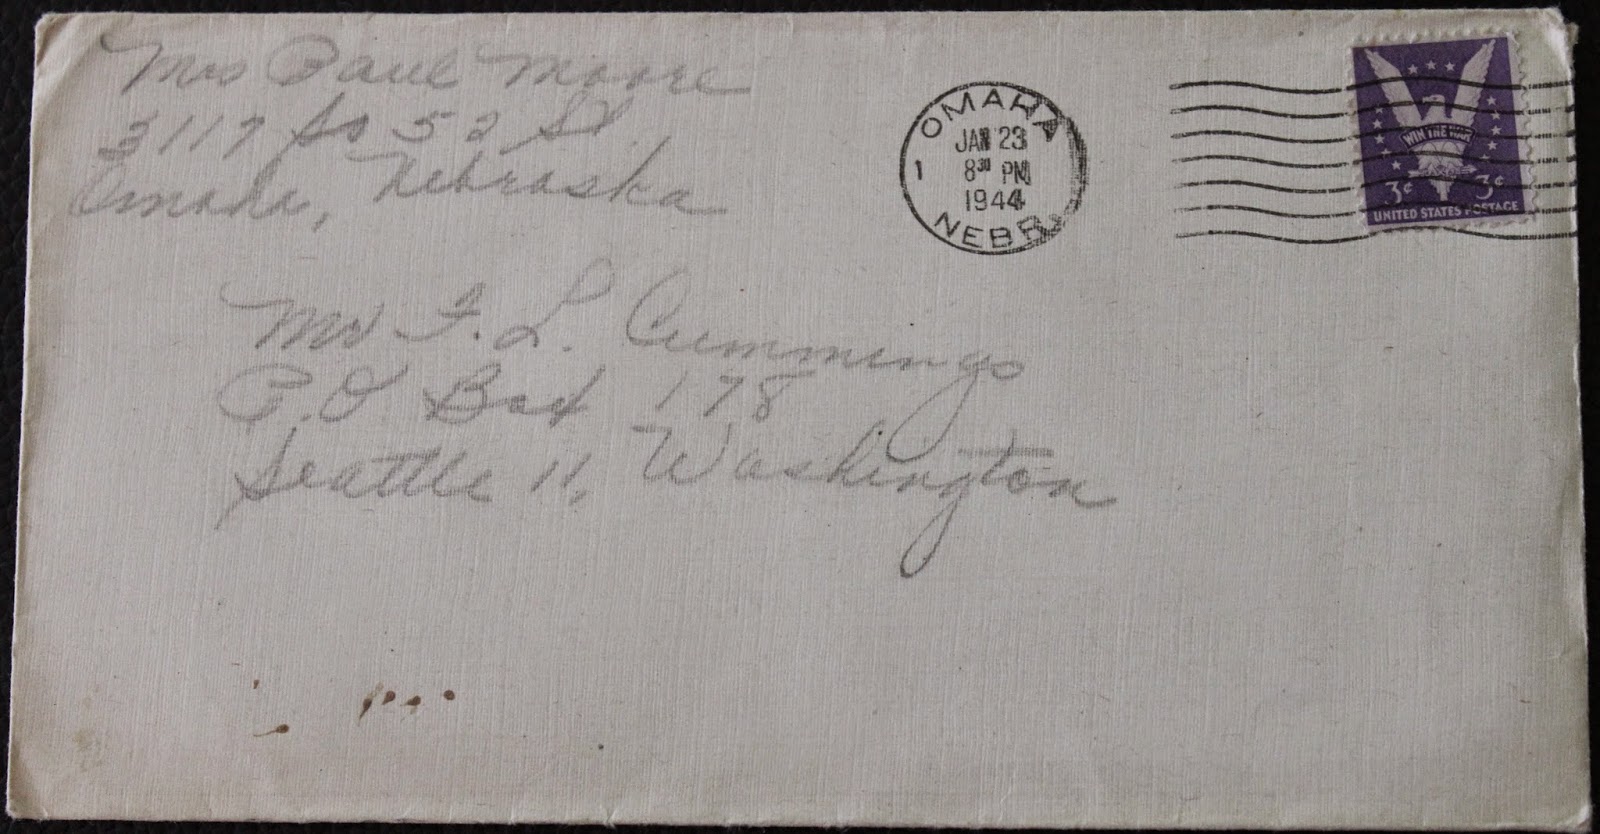 Mrs Paul Moore
3117 So 52 St.,
Omaha, Nebraska
1 OMAHA
JAN 23
8³⁰ PM
1944
NEBR.
WIN THE WAR
3¢ 3¢
UNITED STATES POSTAGE
Mr F. L. Cummings
P.O Box 178
Seattle 11, Washington